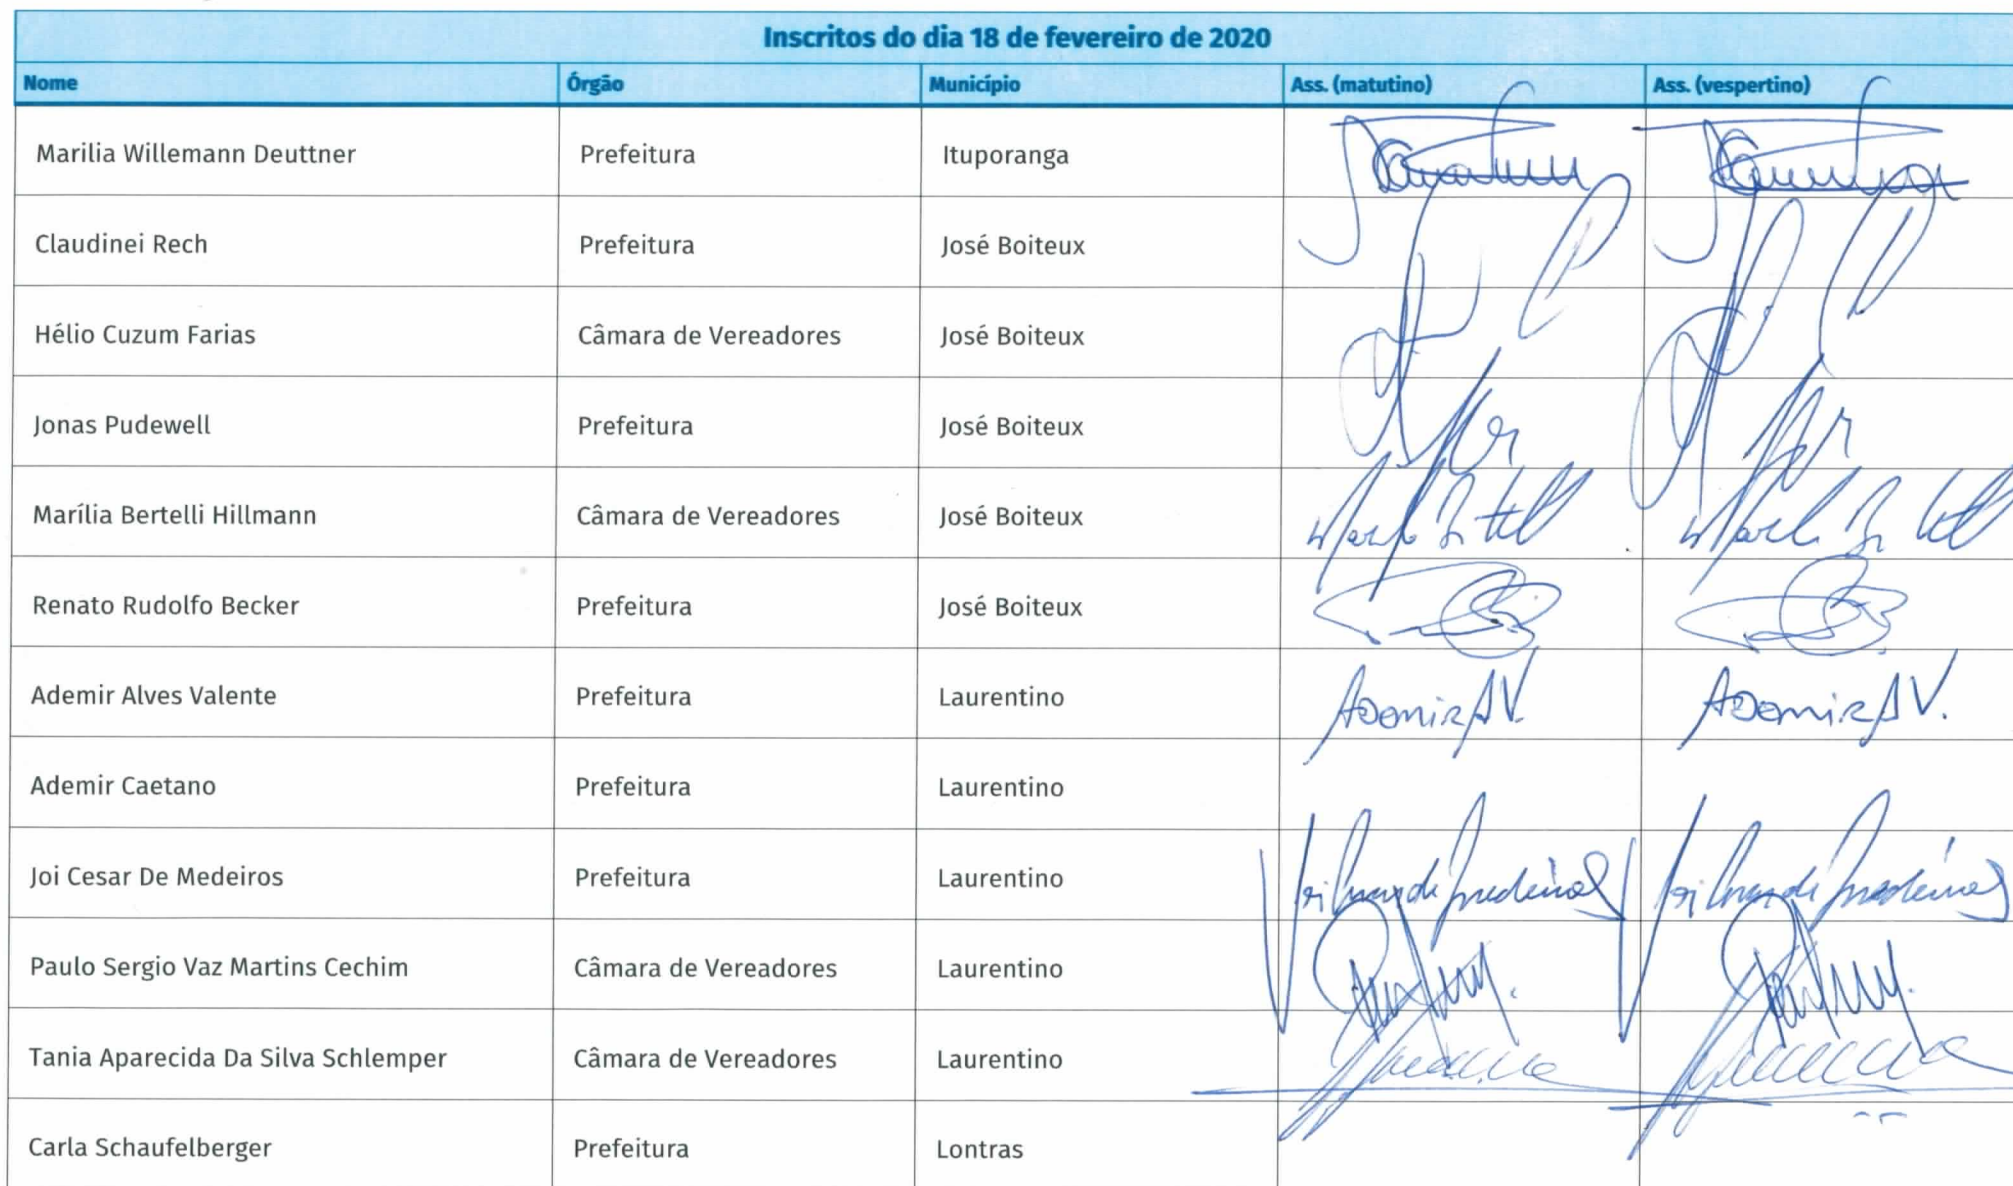 Inscritos do dia 18 de fevereiro de 2020
Nome Órgão Município Ass. (matutino) Ass. (vespertino)
Marilia Willemann Deuttner Prefeitura Ituporanga
Claudinei Rech Prefeitura José Boiteux
Hélio Cuzum Farias Câmara de Vereadores José Boiteux
Jonas Pudewell Prefeitura José Boiteux
Marília Bertelli Hillmann Câmara de Vereadores José Boiteux
Renato Rudolfo Becker Prefeitura José Boiteux
Ademir Alves Valente Prefeitura Laurentino Ademir AV. Ademir AV.
Ademir Caetano Prefeitura Laurentino
Joi Cesar De Medeiros Prefeitura Laurentino
Paulo Sergio Vaz Martins Cechim Câmara de Vereadores Laurentino
Tania Aparecida Da Silva Schlemper Câmara de Vereadores Laurentino
Carla Schaufelberger Prefeitura Lontras